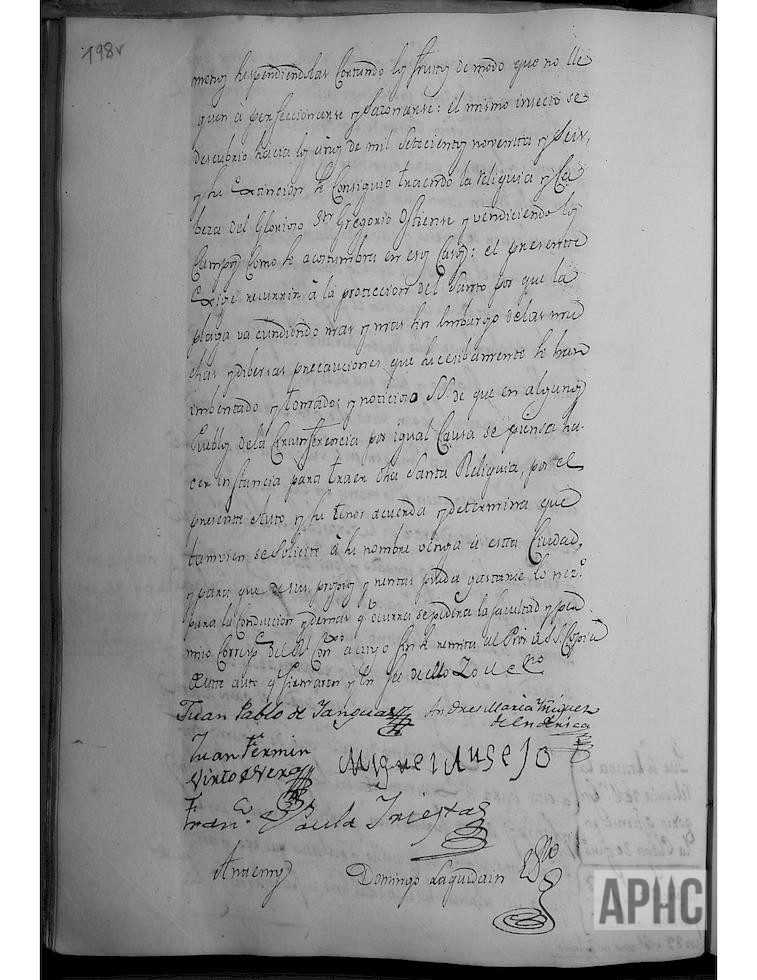 198v
menos suspendiendolas Cortando los frutos de modo que no lle
guen á perfeccionarse y Sazonarse: el mismo insecto se
descubrio hacia los años de mil Setecientos noventa y Seis,
y su Extincion se Consiguio trayendo la Reliquia y Ca
beza del Glorioso Sn Gregorio Ostiense y vendiciendo los
Campos Como se acostumbra en esos Casos: el presente
Exige recurrir á la proteccion del Santo por que la
plaga va cundiendo mas y mas sin Embargo de las mu
chas y dibersas precauciones que sucesibamente se han
imbentado y tomados y noticiosos SS. de que en algunos
Pueblos de la Circunferencia por igual Causa se piensa ha
cer instancia para traer dha Santa Reliquia, por el
presente Auto, y su tenor acuerda y determina que
tamvien se Solicite á su nombre venga á esta Ciudad,
y para que de sus propios y rentas pueda gastarse lo neco.
para la Conduccion y demas q. ocurra se pedira la facultad y per
miso Corresp.e del Rl Conxo a cuyo fin se remita al Pror de SS. Copia
de este auto q. firmaron y en fee de ello Yo el essno
Juan Pablo de Yanguas Andres Maria Yñiguez
de
Juan Fermin
Vinto de Vera Miguel Ausejo
Franco. de Paula Yriestas
Ante mi Domingo Laquidain Essno
APHC